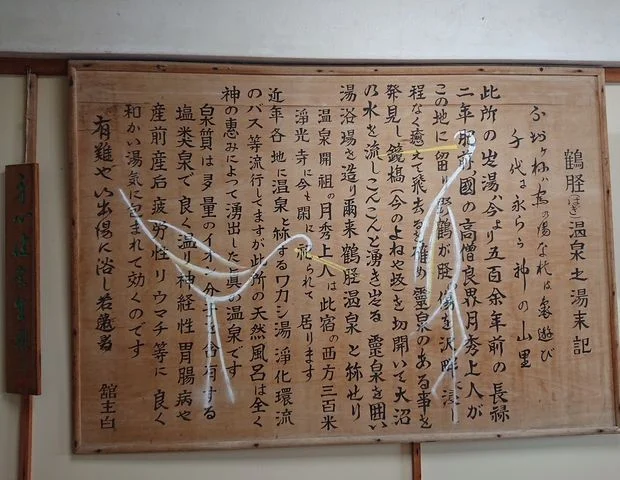 鶴脛(はぎ)温泉之湯来記
千代に永らう神の山里
此所の出湯は今より五百余年前の長禄
二年肥前国の高僧良界月秀上人が
この地に留り野鶴が脛の傷を沢畔に浸し
程なく癒えて飛去るを確め霊泉のある事を
発見し鏡橋(今のよねや故を切開いて大沼
乃水を流しこんこんと湧き出る霊泉を囲い
湯浴場を造り爾来鶴脛温泉と称せり
温泉開祖の月秀上人は此宿の西方三百米
浄光寺に今も閑に祀られて居ります
近年各地に温泉と称するワカシ湯浄化環流
のバス等流行してますが此所の天然風呂は全く
神の恵みによって湧出した真の温泉です
泉質は多量のイオン分子を含有する
塩類泉で良く温り神経性胃腸病や
産前産后疲労性リウマチ等に良く
和かい湯気に包まれて効くのです
有難や出湯に浴し若返る
舘主白